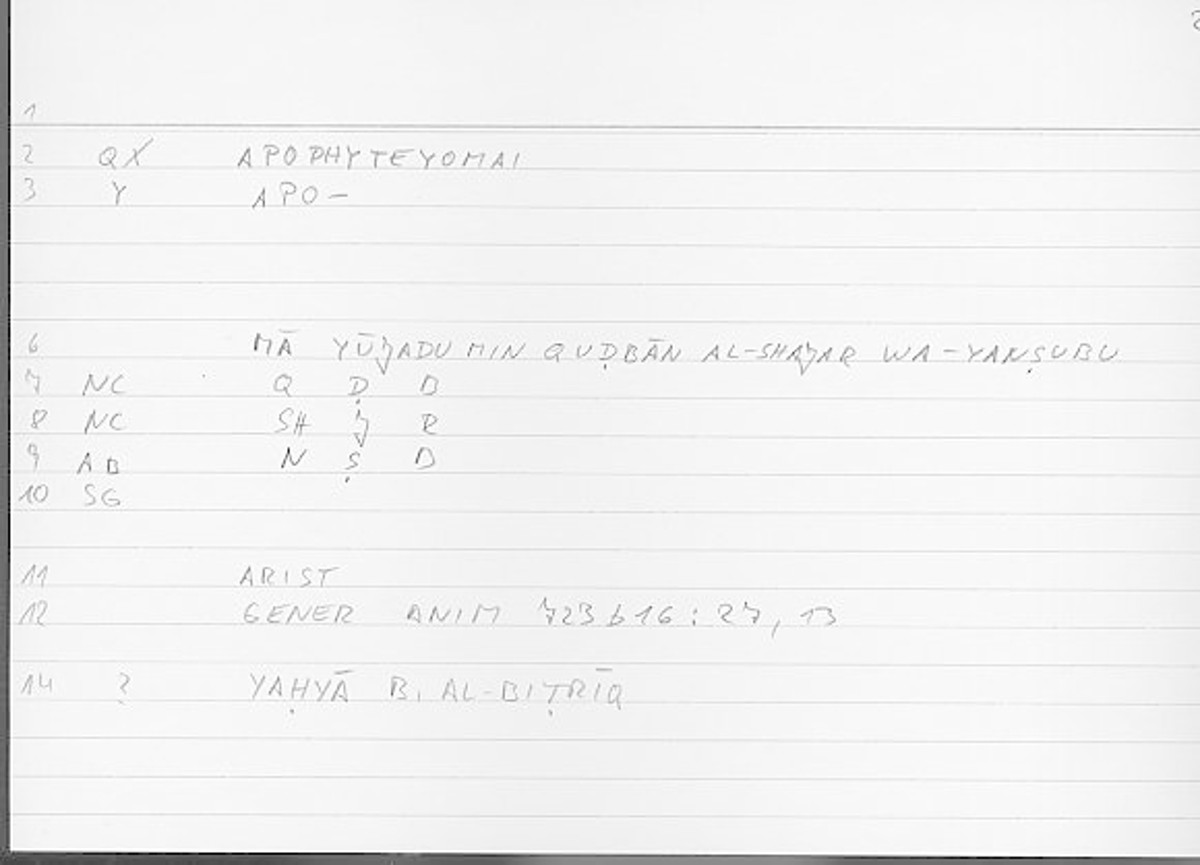 1
2 QX APOPHYTEYOMAI
3 Y APO-
6 MĀ YŪJADU MIN QUḌBĀN AL-SHAJAR WA-YANṢUBU
7 NC Q Ḍ B
8 NC SH J R
9 AB N Ṣ B
10 SG
11 ARIST
12 GENER ANIM 723b16: 27, 13
14 ? YAḤYĀ B. AL-BIṬRĪQ